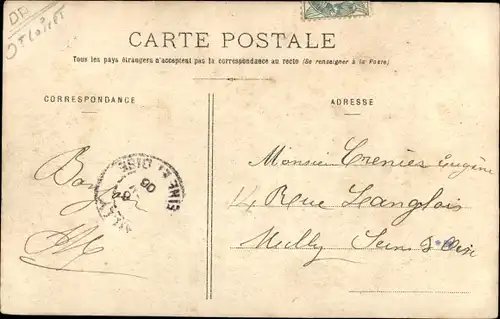 CARTE POSTALE
Tous les pays étrangers n'acceptent pas la correspondance au recto (Se renseigner à la Poste)
CORRESPONDANCE
ADRESSE
SEINE ET OISE
06
Monsieur Crenier Eugène
14 Rue Langlois
Milly Seine & Oise